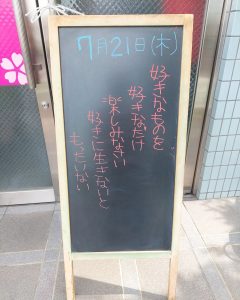 7月21日(木)
好きなものを
好きなだけ
楽しみなさい
好きに生きないと
もったいない